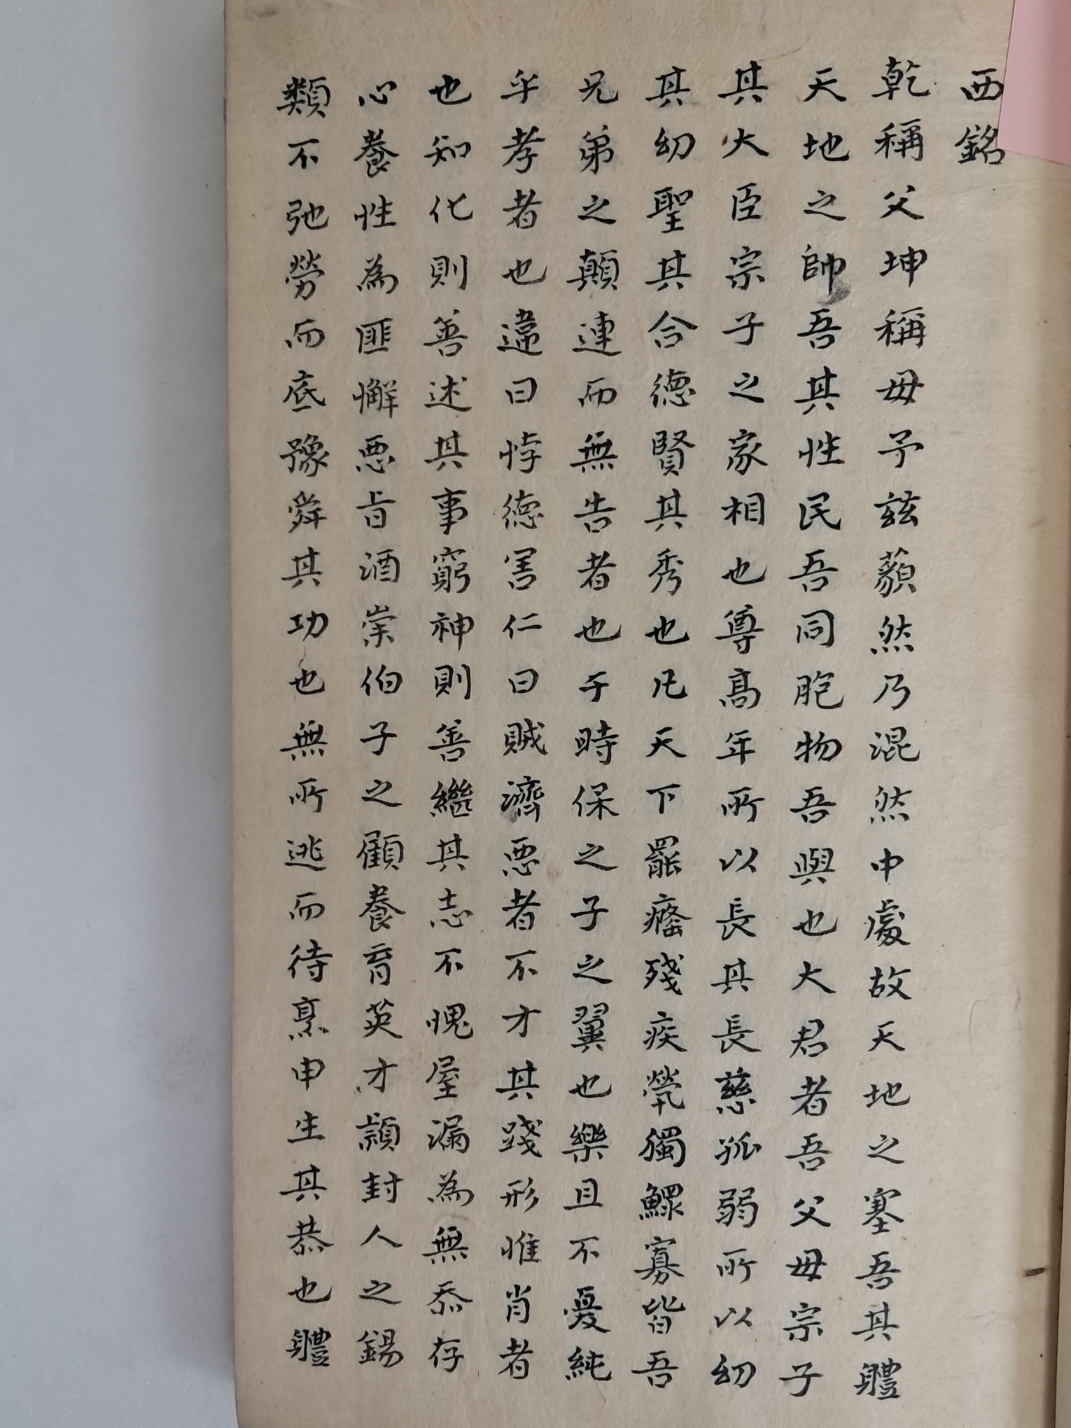 西銘
乾稱父坤稱母予茲藐然乃混然中處故天地之塞吾其體
天地之帥吾其性民吾同胞物吾與也大君者吾父母宗子
其大臣宗子之家相也尊高年所以長其長慈孤弱所以幼
其幼聖其合德賢其秀也凡天下罷癃殘疾惸獨鰥寡皆吾
兄弟之顛連而無告者也于時保之子之翼也樂且不憂純
乎孝者也違曰悖德害仁曰賊濟惡者不才其踐形惟肖者
也知化則善述其事窮神則善繼其志不愧屋漏為無忝存
心養性為匪懈惡旨酒崇伯子之顧養育英才潁封人之錫
類不弛勞而底豫舜其功也無所逃而待烹申生其恭也體